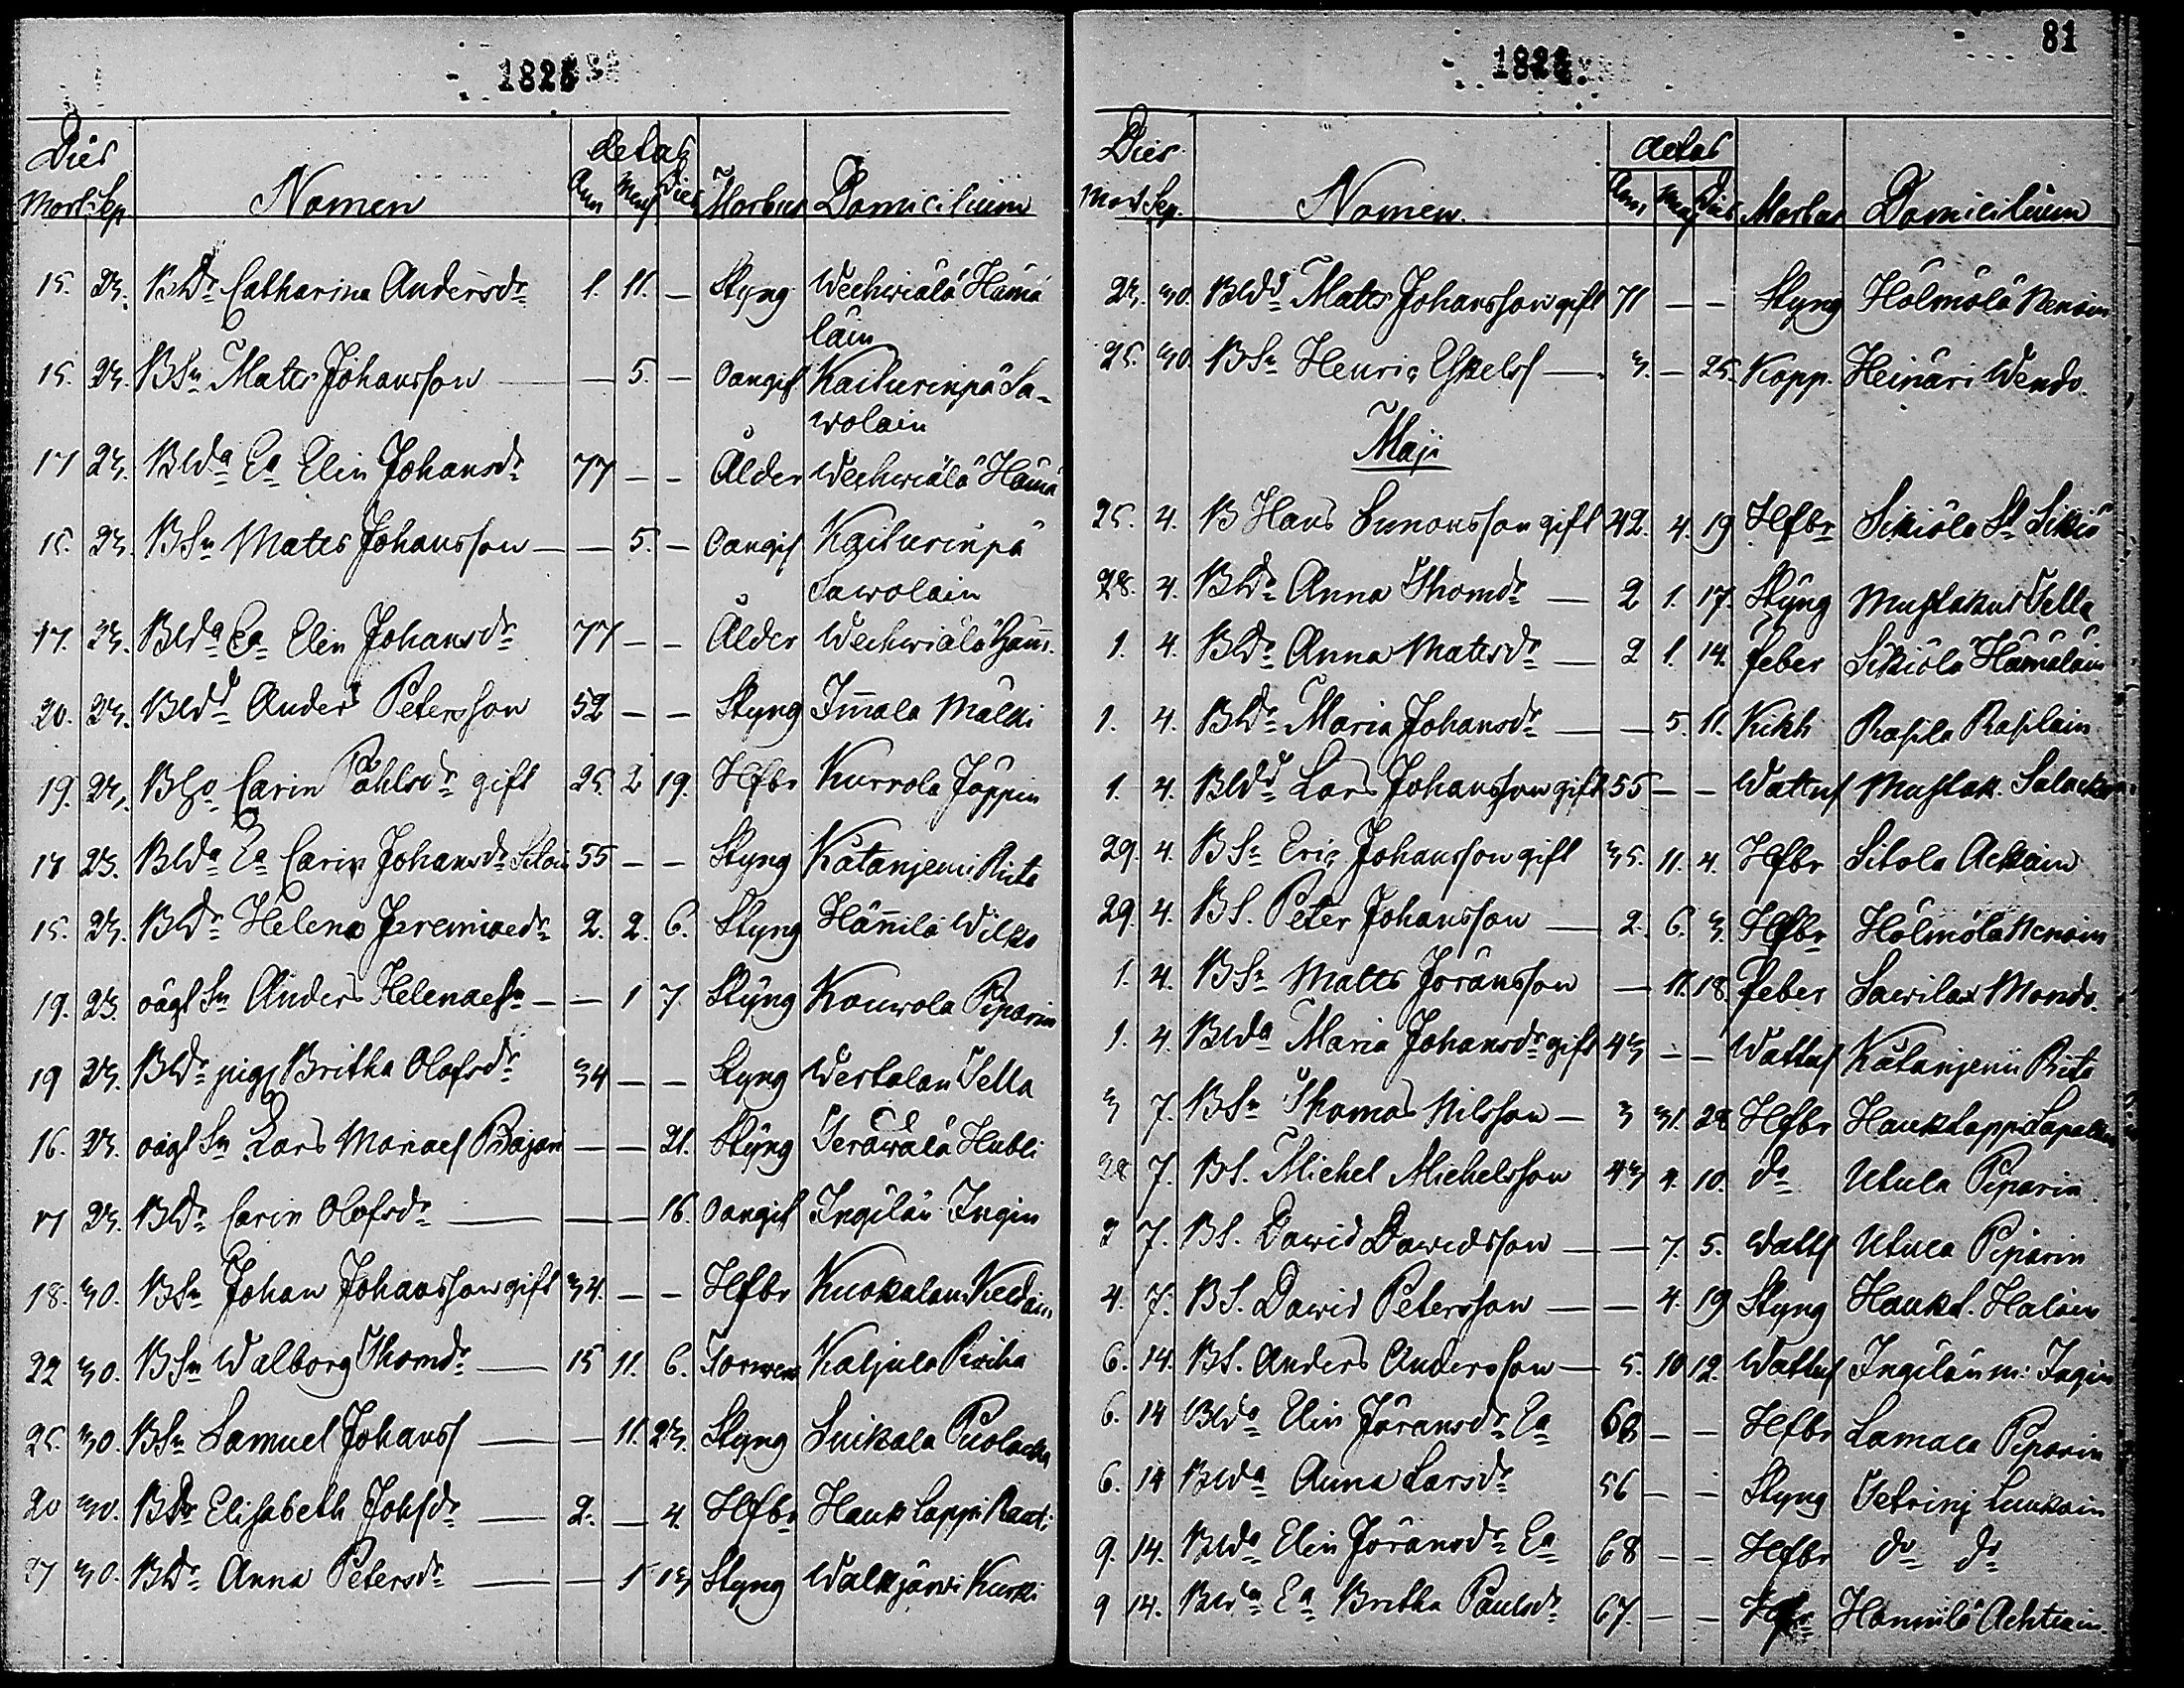 1825
Dies Nomen Aetas Morbus Domicilium
Mort. Sep. Ann Mens Dies
15. 23. BDr Catharina Andersdr 1. 11. — Styng Wechwiälä Hämä
läin
15. 23. BSn Matts Johansson — — 5. — Oangif Kaiturinpä Sa-
wolain
17 23. Blda Ea Elin Johansdr 77 — — Ålder Wechwiälä Hämä
15. 23. BSn Matts Johansson — — 5. — Oangif Kaiturinpä
Sawolain
17. 23. Blda Ea Elin Johansdr 77 — — Ålder Wechwiälä Häm.
20. 23. Bldd Anders Petersson 52 — — Styng Immala Mälki
19. 23. BHu Carin Påhlsdr gift 25. 2 19. Hfbr Kurrola Jäppin
17 23. Blda Ea Carin Johansdr 55 — — Styng Kätänjemi
15. 23. BDr Helena Jeremiaedr 2. 2. 6. Styng Hännilä Wilko
19. 23. oägt Sn Anders Helenaesn — — 1 7. Styng Kouwola Piparin
19 23. BDr pig Britha Olofsdr 34 — — Styng Wertalan Tella
16. 23. oägt Sn Lars Mariaes — — 21. Styng Teräwälä Hubli
17 23. BDr Carin Olofsdr — — — 16. Oangif Ingilän Ingin
18. 30. BSn Johan Johansson gift 34. — — Hfbr Kuokalan
22 30. BSn Walborg Thomdr — 15 11. 6. Kaljula
25. 30. BSn Samuel Johanss — — 11. 23. Styng Suikala Puolacka
20 30. BDr Elisabeth Johsdr — 2. — 4. Hfbr Hauk Lappi Rauti
27 30. BDr Anna Petersdr — — 1 13 Styng Walkjärwi Kurki
81
1825
Dies Nomen Aetas Morbus Domicilium
Mort Sep. Ann Mens Dies
23. 30. Bldd Matts Johansson gift 71 — — Styng Hölmölä Nenoin
25. 30. BSn Henric Eskelss — 3. — 25. Kopp. Heinäri
Maji
25. 4. B Hans Simonsson gift 42. 4. 19 Hfbr Sikiölä St. Sikiö
28. 4. BDr Anna Thomdr — 2 1. 17. Styng Mustakus Tella
1. 4. BDr Anna Mattsdr — 2 1. 14. feber Sikiölä Hämäläin
1. 4. BDr Maria Johansdr — — 5. 11. Kikh Rasila Rasilain
1. 4. Bldd Lars Johansson gift 55 — — Wattus Mustak.
29. 4. BSn Eric Johansson gift 35. 11. 4. Hfbr Sitola Ackain
29. 4. BS. Peter Johansson — 2. 6. 3. Hfbr Hölmölä Nenoin
1. 4. BSn Matts Jöransson — 11. 18. feber Sawilax
1. 4. Blda Maria Johansdr gift 43 — — Wattus Kätänjemi
3 7. BSn Thomas Nilsson — 3 31. 28 Hfbr Hauk Lappi
28 7. BS. Michel Michelsson 43 4. 10. do Utula Piparin.
2 7. BS. Dawid Dawidsson — — 7. 5. Watts Utula Piparin
4. 7. BS. Dawid Petersson — — 4. 19 Styng Haukl. Haloin
6. 14. BS. Anders Andersson — 5. 10 12. Wattus Ingilän m: Ingin
6. 14 Blda Elin Jöransdr Ea 68 — — Hfbr Lamala Piparin
6. 14 Blda Anna Larsdr 56 — — Styng Tetrinj Luukain
9. 14. Blda Elin Jöransdr Ea 68 — — Hfbr do do
9 14. Blda Ea Britha Paulsdr 67. — — Hännilä Achtiain.